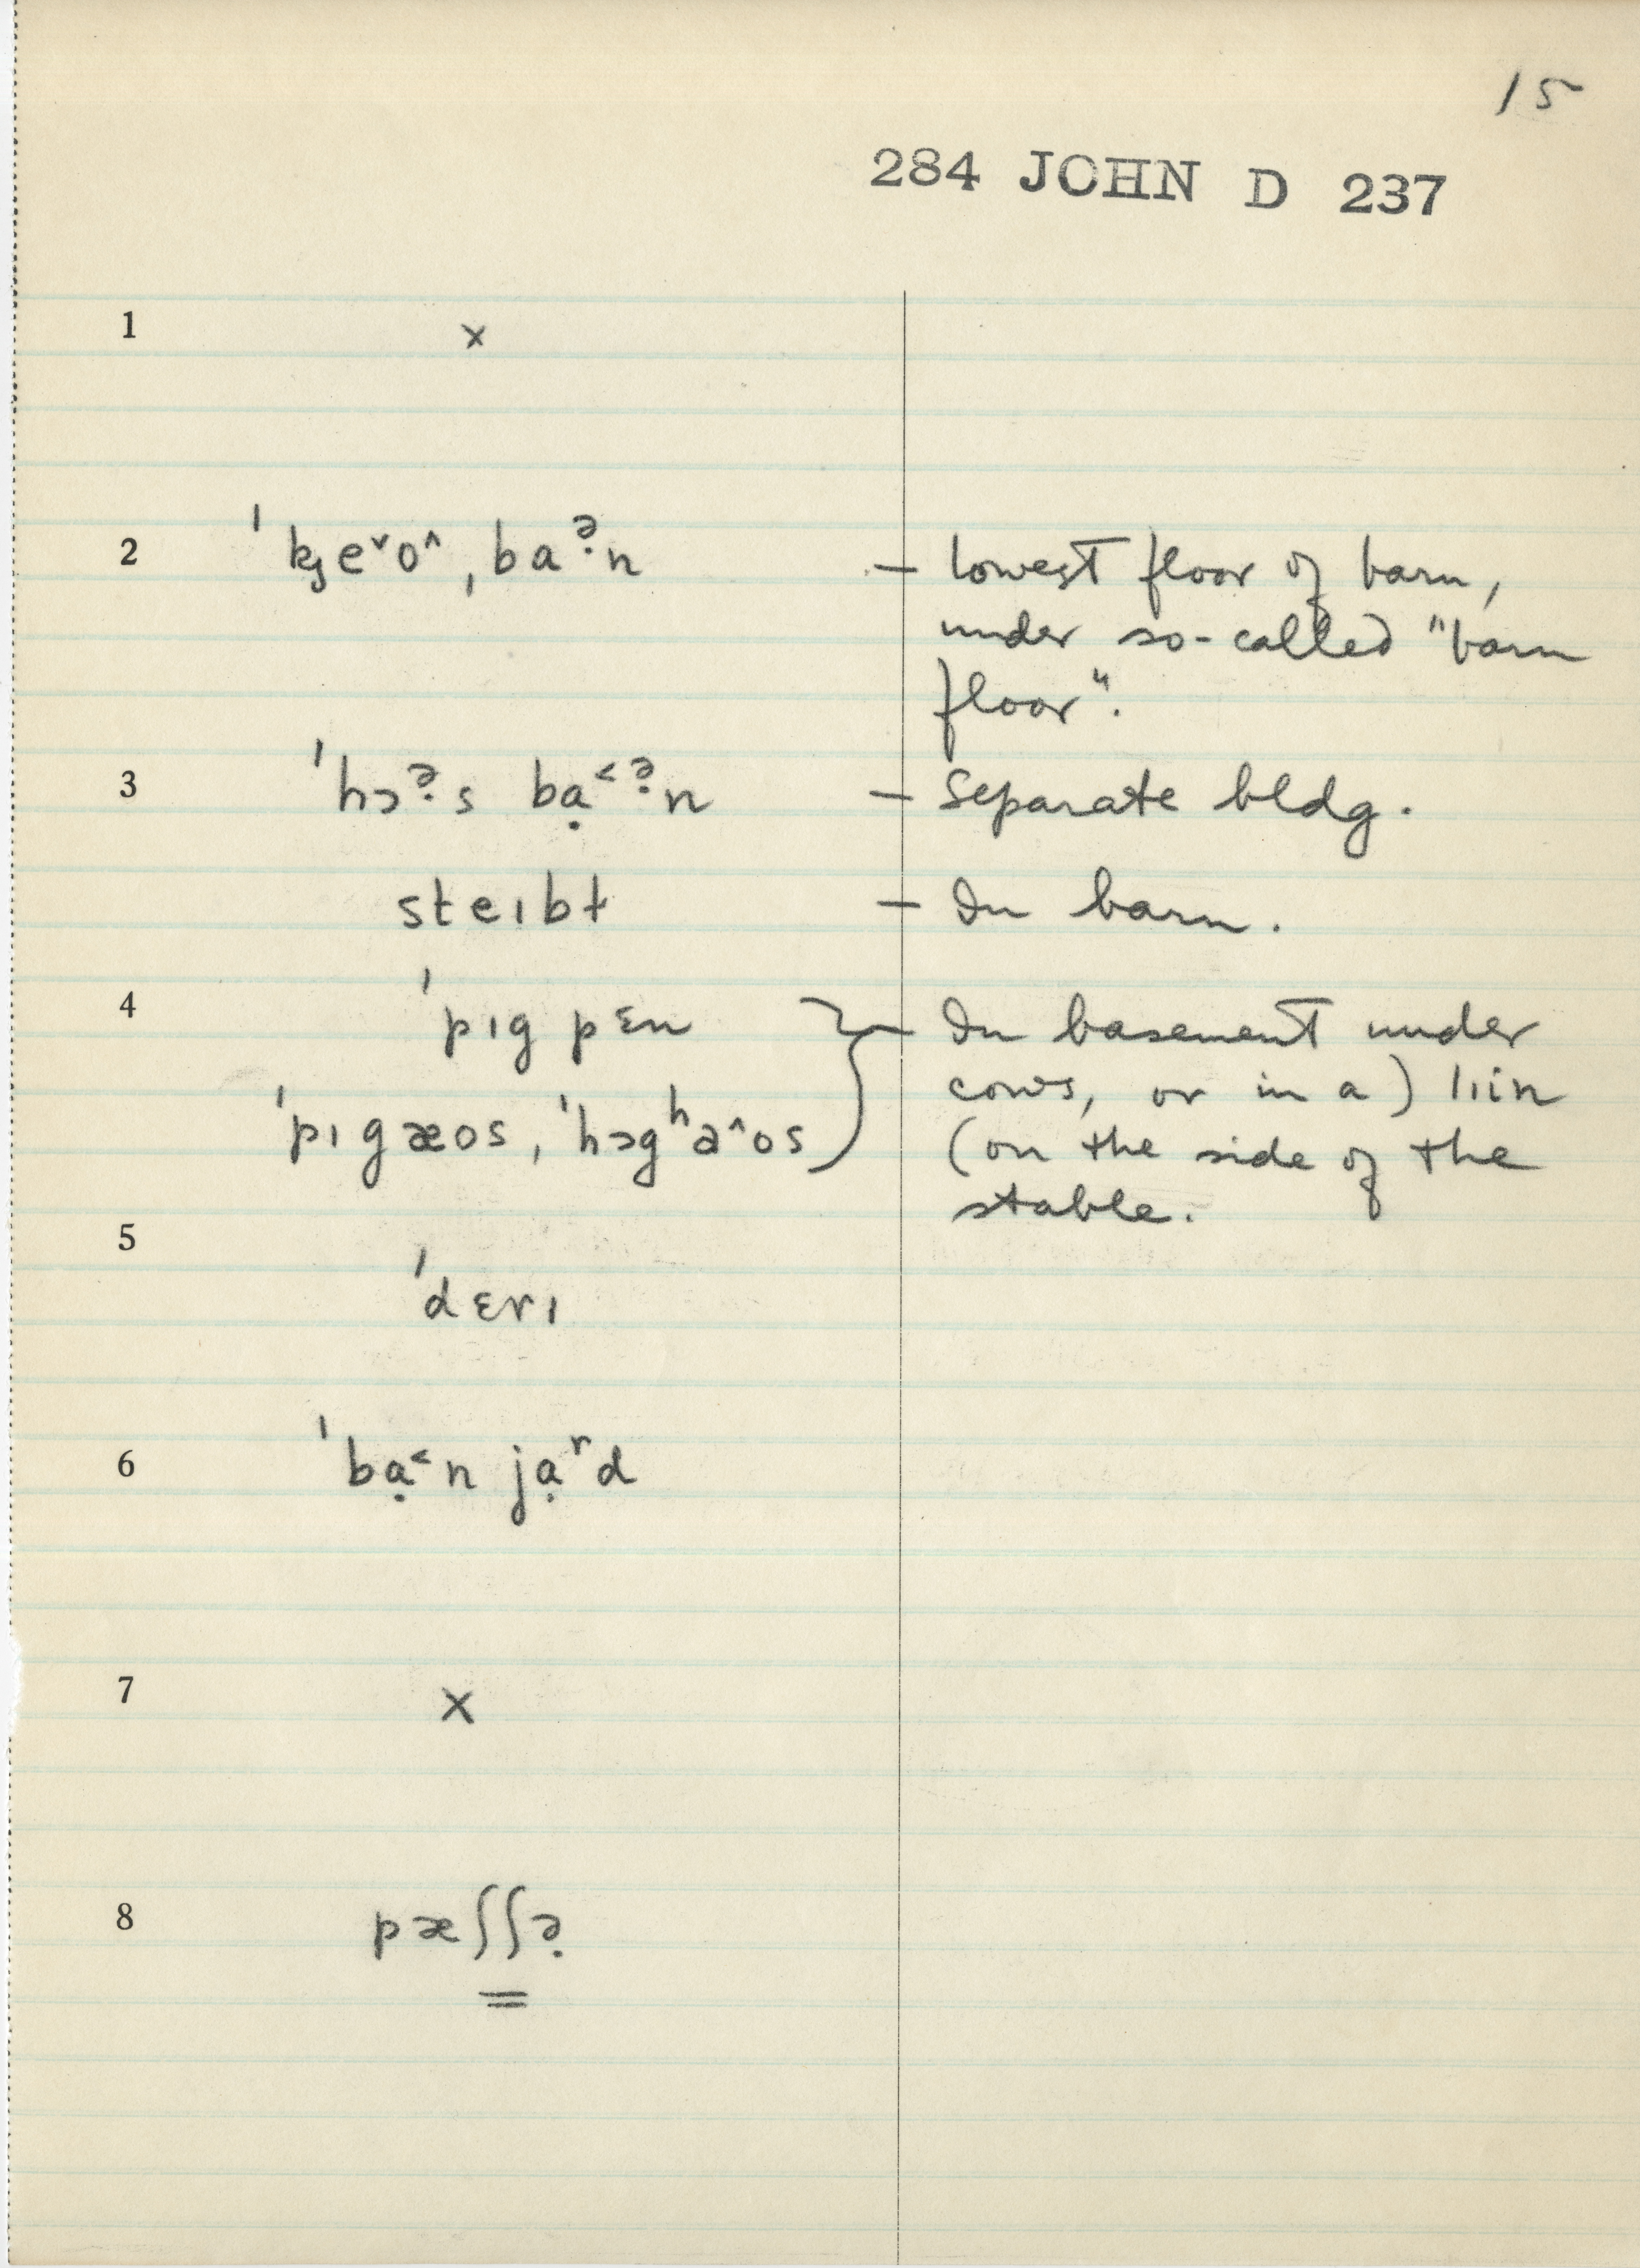 15
284 JOHN D 237
1 ×
2 ˈkȷeˇoˆˌbaə̣n – lowest floor of barn,
under so-called "barn
floor".
3 ˈhɔə̣s bạ˂ə̣n – Separate bldg.
steɪbɫ – In barn.
4 ˈpɪg pɛn } – In basement under
cows, or in a
ˈpɪgæos, ˈhɔgʰaˆos (on the side of the
stable.
5
ˈdɛrɪ
6 ˈbạ˂n jạʳd
7 ×
8 pæʃʃə̣
=